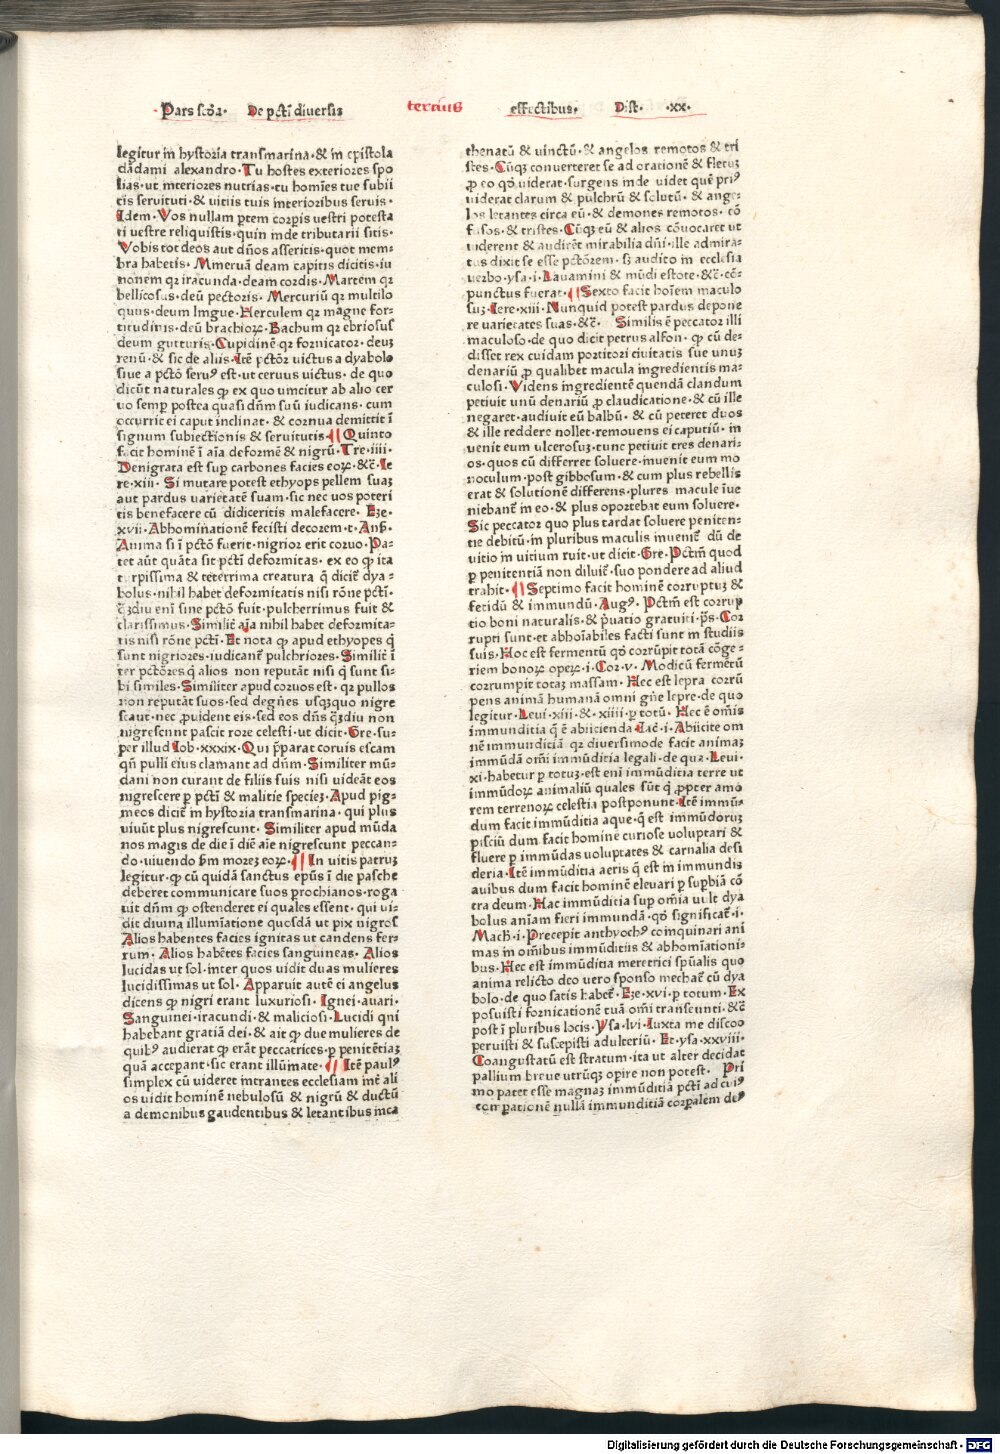 Pars scďa· De pctī diuersis tercius effectibus· Dist· ·xx·
legitur in hystoria transmarina·& in epistola
dādami alexandro·Tu hostes exteriores spo
lias·ut interiores nutrias·tu homīes tue subii
cis seruituti·& uitiis tuis interioribus seruis·
Idem·Vos nullam ptem corpis uestri potesta
ti uestre reliquistis·quin inde tributarii sitis·
Vobis tot deos aut dños asseritis·quot mem-
bra habetis·Mineruā deam capitis dicitis·iu
nonem qꝛ iracunda·deam cordis·Martem qꝛ
bellicosus·deū pectoris·Mercuriū qꝛ multilo
quus·deum lingue·Herculem qꝛ magne for-
titudinis·deū brachioꝝ·Bachum qꝛ ebriosus
deum gutturis·Cupidinē qꝛ fornicator·deuꝫ
renū·& sic de aliis·Itē pctōr uictus a dyabolo
siue a pctō seruꝰ est·ut ceruus uictus·de quo
dicūt naturales ꝙ ex quo uincitur ab alio cer
uo semꝑ postea quasi dñm suū iudicans·cum
occurrit ei caput inclinat·& cornua demittit ī
signum subiectionis & seruitutis·¶Quinto
facit hominē ī aīa deformē & nigrū·Tre·iiii·
Denigrata est suꝑ carbones facies eoꝝ·&c̄·Ie
re·xiii·Si mutare potest ethyops pellem suaꝫ
aut pardus uarietatē suam·sic nec uos poteri
tis benefacere cū didiceritis malefacere· Eze·
xvii·Abhominationē fecisti decorem·t·Anß·
Anima si ī pctō fuerit·nigrior erit coruo·Pa-
tet aūt quāta sit pctī deformitas· ex eo ꝙ ita
turpissima & teterrima creatura q̄ dicit̄ dya-
bolus·nihil habet deformitatis nisi rōne pctī·
q̄ꝫdiu enī sine pctō fuit·pulcherrimus fuit &
clarissimus·Similit̄ aīa nihil habet deformita-
tis nisi rōne pctī·Et nota ꝙ apud ethyopes q̄
sunt nigriores·iudicant̄ pulchriores·Similit̄ ī
ter pctōres q̄ alios non reputāt nisi q̄ sunt si-
bi similes·Similiter apud coruos est·qꝛ pullos
non reputāt suos·sed degn̄es usqꝫquo nigre
scant·nec ꝓuident eis·sed eos dñs q̄ꝫdiu non
nigrescunt pascit rore celesti·ut dicit·Gre·su-
per illud Iob·xxxix·Qui p̄parat coruis escam
qn̄ pulli eius clamant ad dñm·Similiter mū-
dani non curant de filiis suis nisi uideāt eos
nigrescere ꝑ pctī & malitie specieꝫ·Apud pig-
meos dicit̄ in hystoria transmarina· qui plus
uiuūt plus nigrescunt· Similiter apud mūda
nos magis de die ī diē aīe nigrescunt peccan-
do·uiuendo ßm moreꝫ eoꝝ·¶In uitis patruꝫ
legitur·ꝙ cū quidā sanctus epūs ī die pasche
deberet communicare suos prochianos·roga
uit dñm ꝙ ostenderet ei quales essent· qui ui-
dit diuina illumīatione quosdā ut pix nigros
Alios habentes facies ignitas ut candens fer-
rum· Alios habētes facies sanguineas· Alios
lucidas ut sol·inter quos uidit duas mulieres
lucidissimas ut sol·Apparuit autē ei angelus
dicens ꝙ nigri erant luxuriosi· Ignei·auari·
Sanguinei·iracundi·& maliciosi·Lucidi qui
habebant gratiā dei·& ait ꝙ due mulieres de
quibꝰ audierat ꝙ erāt peccatrices·ꝑ penitētiaꝫ
quā acceperant·sic erant illūinate·¶Itē paulꝰ
simplex cū uideret intrantes ecclesiam int̄ ali
os uidit hominē nebulosū & nigrū & ductū
a demonibus gaudentibus & letantibus inca
thenatū & uinctū·& angelos remotos & tri
stes·Cūqꝫ conuerteret se ad orationē & fletuꝫ
ꝓ eo qđ uiderat·surgens inde uidet quē priꝰ
uiderat clarum & pulchrū & solutū· & ange-
los letantes circa eū·& demones remotos· cō
fusos·& tristes·Cūqꝫ eū & alios cōuocaret ut
uiderent & audirēt mirabilia dñi·ille admira-
tus dixit se esse pctōrem·sꝫ audito in ecclesia
uerbo·ysa·i·Lauamini & mūdi estote·&c̄·cō-
punctus fuerat·¶Sexto facit hoīem maculo
suꝫ·Iere·xiii·Nunquid potest pardus depone
re uarietates suas·&c̄· Similis ē peccator illi
maculoso·de quo dicit petrus alfon·ꝙ cū de-
disset rex cuidam portitori ciuitatis sue unuꝫ
denariū ꝓ qualibet macula ingredientis ma-
culosi·Videns ingredientē quendā clandum
petiuit unū denariū ꝓ claudicatione·& cū ille
negaret·audiuit eū balbū· & cū peteret duos
& ille reddere nollet·remouens ei caputiū·in
uenit eum ulcerosuꝫ·tunc petiuit tres denari-
os·quos cū differret soluere·inuenit eum mo
noculum·post gibbosum·& cum plus rebellis
erat & solutionē differens·plures macule īue
niebant̄ in eo·& plus oportebat eum soluere·
Sic peccator quo plus tardat soluere peniten-
tie debitū·in pluribus maculis inuenit̄ dū de
uitio in uitium ruit·ut dicit·Gre·Pctm̄ quod
ꝑ penitentiā non diluit̄·suo pondere ad aliud
trahit·¶Septimo facit hominē corruptuꝫ &
fetidū & immundū·Augꝰ·Pctm̄ est corrup
tio boni naturalis·& p̄uatio gratuiti·p̄s·Cor
rupti sunt·et abhoīabiles facti sunt in studiis
suis·Hoc est fermentū qđ corrūpit totā cōge-
riem bonoꝝ opeꝝ·i·Cor·v·Modicū fermētū
corrumpit totaꝫ massam·Hec est lepra corrū
pens animā humanā omni gn̄e lepre·de quo
legitur·Leui·xiii·& xiiii·ꝑ totū·Hec ē om̄is
immunditia q̄ ē abiicienda·Iac̄·i·Abiicite om
nē immunditiā qꝛ diuersimode facit animaꝫ
immūdā om̄i immūditia legali·de qua·Leui·
xi·habetur ꝑ totuꝫ·est enī immūditia terre ut
immūdoꝝ animaliū quales sūt q̄ ꝓpter amo
rem terrenoꝝ celestia postponunt·Itē immū-
dum facit immūditia aque·q̄ est immūdoruꝫ
pisciū dum facit hominē curiose uoluptari &
fluere ꝑ immūdas uoluptates & carnalia desi
deria·Itē immūditia aeris q̄ est in immundis
auibus dum facit hominē eleuari ꝑ supbiā cō
tra deum·Hac immūditia sup om̄ia uult dya
bolus aniam fieri immundā·qđ significat̄·i·
Mach̄·i·Precepit anthyochꝰ coinquinari ani
mas in om̄ibus immūditiis & abhomīationi-
bus·Hec est immūditia meretrici spūalis quo
anima relicto deo uero sponso mechat̄ cū dya
bolo·de quo satis habet̄·Eze·xvi·ꝑ totum·Ex
posuisti fornicationē tuā om̄i transeunti·&c̄
post ī pluribus locis·Ysa·lvi·Iuxta me discoo
peruisti & suscepisti adulteriū· Et·ysa·xxviii·
Coangustatū est stratum·ita ut alter decidat
pallium breue utrūqꝫ opire non potest· Pri
mo patet esse magnaꝫ immūditiā pctī ad cuiꝰ
comparationē nullā immunditiā corꝑalem deꝰ
Digitalisierung gefördert durch die Deutsche Forschungsgemeinschaft - DFG